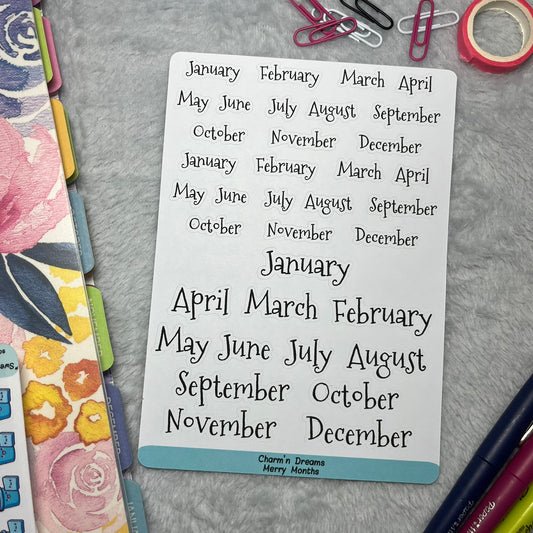 January February March April
May June July August September
October November December
January February March April
May June July August September
October November December
January
April March February
May June July August
September October
November December
Charm'n Dreams
Merry Months
DECEMBER